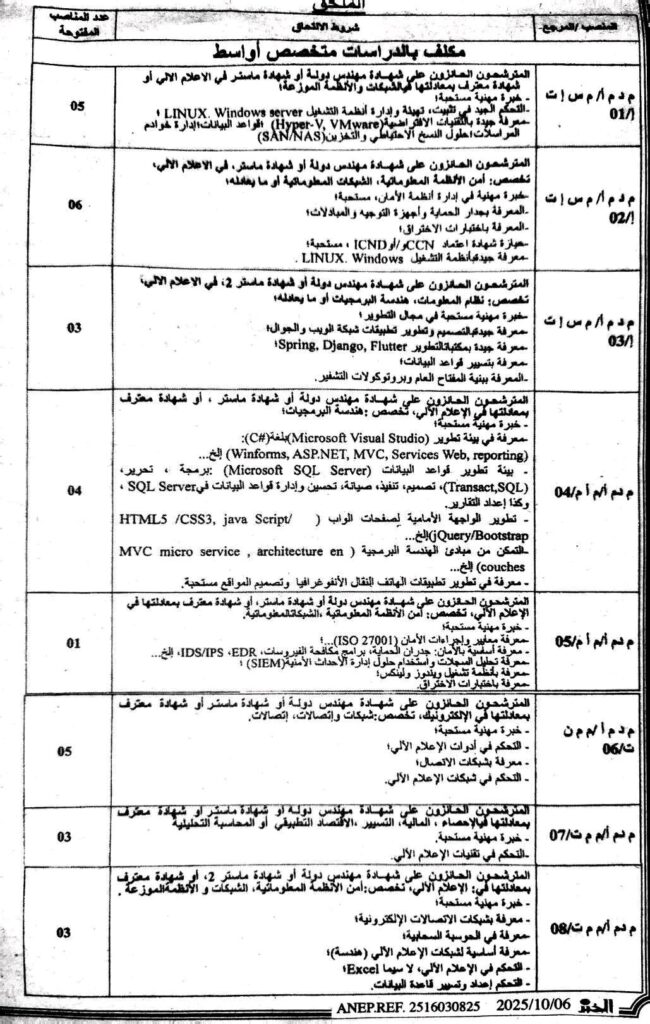 الملحق
المنصب/المرجع
شروط الالتحاق
عدد المناصب المفتوحة
مكلف بالدراسات متخصص أواسط
م د م أ/ م س إ ت
01/أ
المترشحون الحائزون على شهادة مهندس دولة أو شهادة ماستر في الاعلام الالي أو
شهادة معترف بمعادلتها في الشبكات والأنظمة الموزعة؛
- خبرة مهنية مستحبة؛
- التحكم الجيد في تثبيت، تهيئة وإدارة أنظمة التشغيل LINUX. Windows server ؛
- معرفة جيدة بالتقنيات الافتراضية(Hyper-V, VMware) ؛قواعد البيانات؛إدارة خوادم
المراسلات؛حلول النسخ الاحتياطي والتخزين(SAN/NAS)؛
05
م د م أ/ م س إ ت
02/أ
المترشحون الحائزون على شهادة مهندس دولة أو شهادة ماستر، في الاعلام الالي،
تخصص: أمن الأنظمة المعلوماتية، الشبكات المعلوماتية أو ما يعادله؛
-خبرة مهنية في إدارة أنظمة الأمان، مستحبة؛
-المعرفة بجدار الحماية وأجهزة التوجيه والمبادلات؛
-المعرفة باختبارات الاختراق؛
-حيازة شهادة اعتماد CCNو/أوICND ، مستحبة؛
-معرفة جيدةبأنظمة التشغيل LINUX. Windows .
06
م د م أ/ م س إ ت
03/أ
المترشحون الحائزون على شهادة مهندس دولة أو شهادة ماستر 2، في الاعلام الالي،
تخصص: نظام المعلومات، هندسة البرمجيات أو ما يعادله؛
-خبرة مهنية مستحبة في مجال التطوير؛
-معرفة جيدةبالتصميم وتطوير تطبيقات شبكة الويب والجوال؛
-معرفة جيدة بمكتباتالتطوير Spring, Django, Flutter؛
-معرفة بتسيير قواعد البيانات؛
-المعرفة ببنية المفتاح العام وبروتوكولات التشفير.
03
م د م أ/م أ م/04
المترشحون الحائزون على شهادة مهندس دولة أو شهادة ماستر ، أو شهادة معترف
بمعادلتها في الإعلام الآلي، تخصص :هندسة البرمجيات؛
- خبرة مهنية مستحبة؛
-معرفة في بيئة تطوير (Microsoft Visual Studio)بلغة(C#):
(Winforms, ASP.NET, MVC, Services Web, reporting) إلخ...
- بيئة تطوير قواعد البيانات (Microsoft SQL Server) :برمجة ، تحرير،
(Transact,SQL)، تصميم، تنفيذ، صيانة، تحسين وإدارة قواعد البيانات فيSQL Server ،
وكذا إعداد التقارير.
- تطوير الواجهة الأمامية لصفحات الواب ( HTML5 /CSS3, java Script/
jQuery/Bootstrap)إلخ...
-التمكن من مبادئ الهندسة البرمجية ( MVC micro service , architecture en
couches) إلخ...
- معرفة في تطوير تطبيقات الهاتف النقال الأنفوغرافيا وتصميم المواقع مستحبة.
04
م د م أ/م أ م/05
المترشحون الحائزون على شهادة مهندس دولة أو شهادة ماستر، أو شهادة معترف بمعادلتها في
الإعلام الآلي، تخصص: أمن الأنظمة المعلوماتية ،الشبكاتالمعلوماتية.
- خبرة مهنية مستحبة؛
-معرفة معايير وإجراءات الأمان (ISO 27001)...؛
- معرفة أساسية بالأمان: جدران الحماية، برامج مكافحة الفيروسات، IDS/IPS ،EDR، إلخ...
-معرفة تحليل السجلات واستخدام حلول إدارة الأحداث الأمنية(SIEM) ؛
-معرفة بأنظمة تشغيل ويندوز ولينكس؛
-معرفة باختبارات الاختراق.
01
م د م أ/م م ن
ت/06
المترشحون الحائزون على شهادة مهندس دولة أو شهادة ماستر أو شهادة معترف
بمعادلتها في الإلكترونيك، تخصص:شبكات وإتصالات، إتصالات.
- خبرة مهنية مستحبة؛
- التحكم في أدوات الإعلام الآلي؛
- معرفة بشبكات الاتصال؛
- التحكم في شبكات الإعلام الآلي.
05
م د م أ/م م ت/07
المترشحون الحائزون على شهادة مهندس دولة او شهادة ماستر او شهادة معترف
بمعادلتها في:الإحصاء ، المالية، التسيير ،الاقتصاد التطبيقي أو المحاسبة التحليلية
- خبرة مهنية مستحبة.
-التحكم في تقنيات الإعلام الآلي.
03
م د م أ/م م ت/08
المترشحون الحائزون على شهادة مهندس دولة أو شهادة ماستر 2، أو شهادة معترف
بمعادلتها في: الإعلام الآلي، تخصص:أمن الأنظمة المعلوماتية، الشبكات و الأنظمةالموزعة .
- خبرة مهنية مستحبة؛
- معرفة بشبكات الاتصالات الإلكترونية؛
-معرفة في الحوسبة السحابية؛
- معرفة أساسية لشبكات الإعلام الآلي (هندسة)؛
- التحكم في الإعلام الآلي، لا سيما Excel؛
- التحكم إعداد وتسيير قاعدة البيانات.
03
الخبر 2025/10/06 ANEP.REF. 2516030825